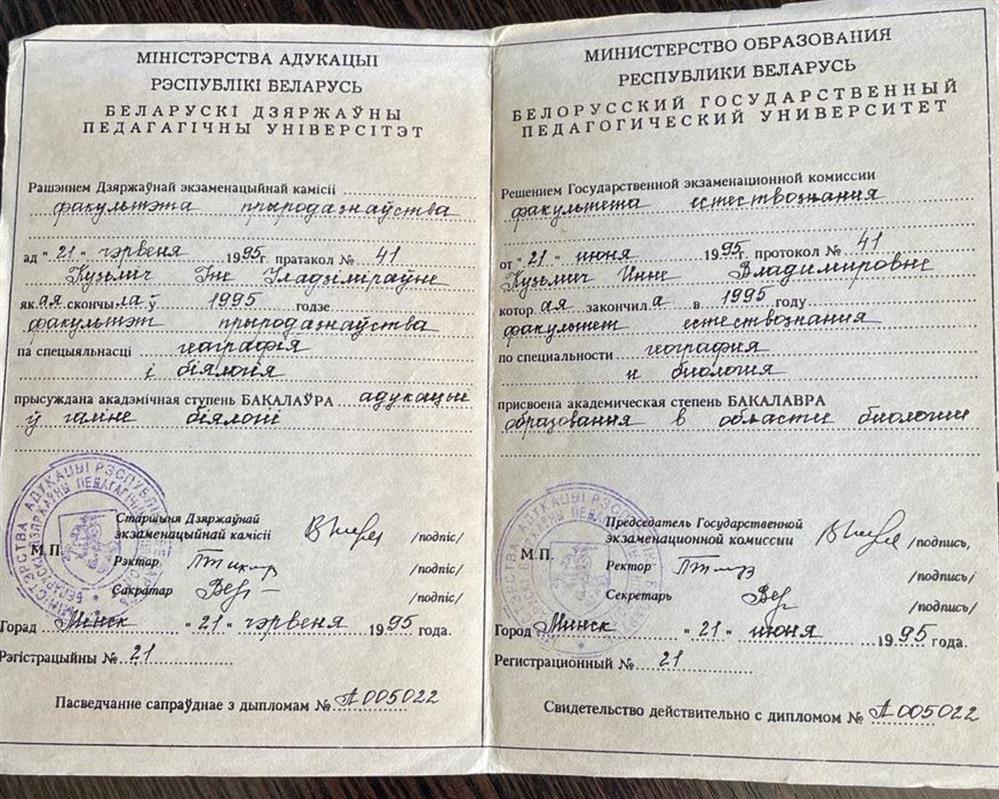 МІНІСТЭРСТВА АДУКАЦЫІ
РЭСПУБЛІКІ БЕЛАРУСЬ
БЕЛАРУСКІ ДЗЯРЖАЎНЫ
ПЕДАГАГІЧНЫ УНІВЕРСІТЭТ
Рашэннем Дзяржаўнай экзаменацыйнай камісіі
факультэта прыродазнаўства
ад "21" чэрвеня 1995г. пратакол № 41
Кузьміч Іне Уладзіміраўне
як.ая скончыла ў 1995 годзе
факультэт прыродазнаўства
па спецыяльнасці география
і біялогія
прысуждана акадэмічная ступень БАКАЛАЎРА адукацыі
ў галіне біялогіі
М.П.
Старшыня Дзяржаўнай
экзаменацыйнай камісіі /подпіс/
Рэктар /подпіс/
Сакратар /подпіс/
Горад Мінск "21" чэрвеня 1995 года.
Рэгістрацыйны № 21
Пасведчанне сапраўднае з дыпломам № А 005022
МИНИСТЕРСТВО ОБРАЗОВАНИЯ
РЕСПУБЛИКИ БЕЛАРУСЬ
БЕЛОРУССКИЙ ГОСУДАРСТВЕННЫЙ
ПЕДАГОГИЧЕСКИЙ УНИВЕРСИТЕТ
Решением Государственной экзаменационной комиссии
факультета естествознания
от "21" июня 1995г. протокол № 41
Кузьмич Инне Владимировне
котор ая закончила в 1995 году
факультет естествознания
по специальности география
и биология
присвоена академическая степень БАКАЛАВРА
образования в области биологии
М.П.
Председатель Государственной
экзаменационной комиссии /подпись,
Ректор /подпись/
Секретарь /подпись/
Город Минск "21" июня 1995 года.
Регистрационный № 21
Свидетельство действительно с дипломом № А 005022